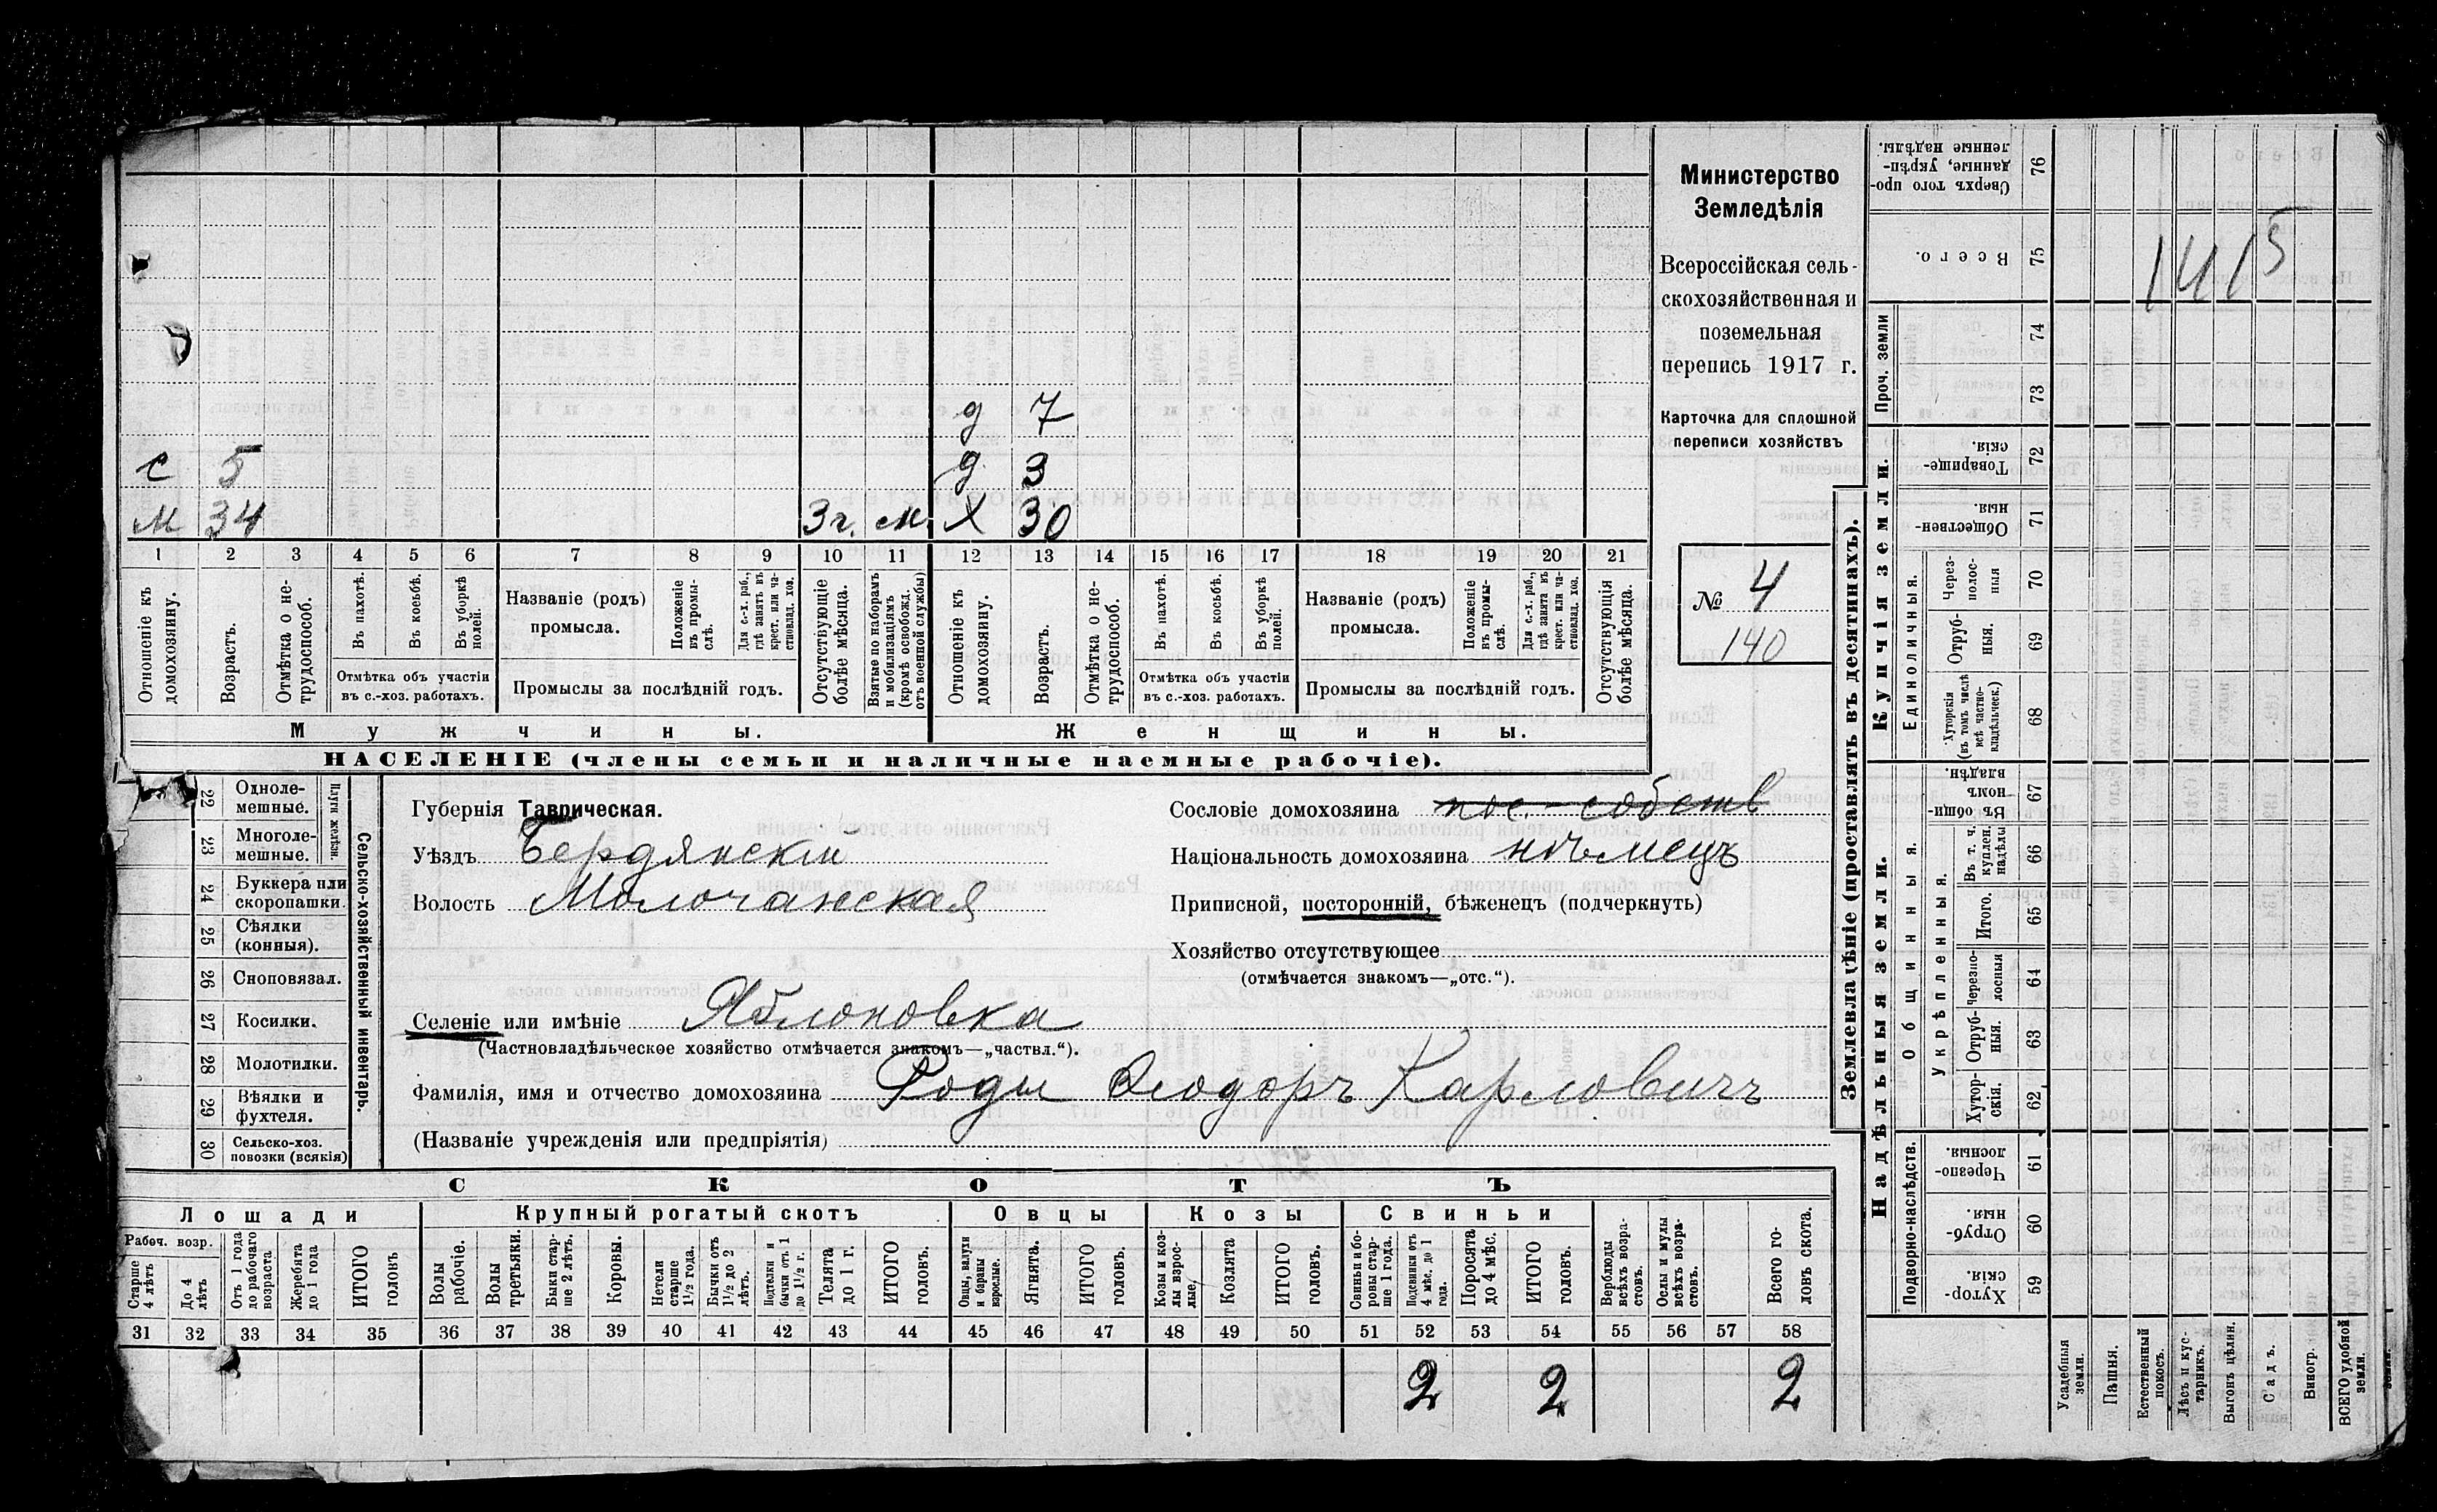 Министерство
Земледѣлія
Всероссійская сель-
скохозяйственная и
поземельная
перепись 1917 г.
Карточка для сплошной
переписи хозяйствъ
№ 4
140
д 7
с 5 д 3
м 34 3 г. м. х 30
1 2 3 4 5 6 7 8 9 10 11 12 13 14 15 16 17 18 19 20 21
Отношеніе къ домохозяину.
Возрастъ.
Отмѣтка о не-трудоспособ.
Въ пахотѣ.
Въ косьбѣ.
Въ уборкѣ полей.
Отмѣтка объ участіи въ с.-хоз. работахъ.
Названіе (родъ) промысла.
Положеніе въ промы-слѣ.
Для с.-х. раб., гдѣ занятъ въ крест. или ча-стновлад. хоз.
Промыслы за послѣдній годъ.
Отсутствующіе болѣе мѣсяца.
Взятые по наборамъ и мобилизаціямъ (кромѣ освобожд. отъ военной службы)
Отношеніе къ домохозяину.
Возрастъ.
Отмѣтка о не-трудоспособ.
Въ пахотѣ.
Въ косьбѣ.
Въ уборкѣ полей.
Отмѣтка объ участіи въ с.-хоз. работахъ.
Названіе (родъ) промысла.
Положеніе въ промы-слѣ.
Для с.-х. раб., гдѣ занята въ крест. или ча-стновлад. хоз.
Промыслы за послѣдній годъ.
Отсутствующія болѣе мѣсяца.
Мужчины. Женщины.
НАСЕЛЕНІЕ (члены семьи и наличные наемные рабочіе).
22 Одноле-мешные.
23 Многоле-мешные.
Плуги желѣзн.
24 Буккера или скоропашки.
25 Сѣялки (конныя).
26 Сноповязал.
27 Косилки.
28 Молотилки.
29 Вѣялки и фухтеля.
30 Сельско-хоз. повозки (всякія)
Сельско-хозяйственный инвентарь.
Губернія Таврическая.
Уѣздъ Бердянскій
Волость Молочанская
Селеніе или имѣніе Яблоновка
(Частновладѣльческое хозяйство отмѣчается знакомъ—„частвл.“).
Сословіе домохозяина пос.-собств
Національность домохозяина нѣмецъ
Приписной, посторонній, бѣженецъ (подчеркнуть)
Хозяйство отсутствующее
(отмѣчается знакомъ—„отс.“).
Фамилія, имя и отчество домохозяина Роды Ѳеодоръ Карловичъ
(Названіе учрежденія или предпріятія)
СКОТЪ
Лошади Крупный рогатый скотъ Овцы Козы Свиньи
Рабоч. возр.
Старше 4 лѣтъ
До 4 лѣтъ
Отъ 1 года до рабочаго возраста
Жеребята до 1 года
ИТОГО головъ
Волы рабочіе.
Волы третьяки.
Быки стар-ше 2 лѣтъ.
Коровы.
Нетели старше 1½ года.
Бычки отъ 1½ до 2 лѣтъ.
Подтелки и бычки отъ 1 до 1½ г.
Телята до 1 г.
ИТОГО головъ.
Овцы, валухи и бараны взрослые.
Ягнята.
ИТОГО головъ.
Козы и коз-лы взрос-лые.
Козлята
ИТОГО головъ.
Свиньи и бо-ровы стар-ше 1 года.
Подсвинки отъ 4 мѣс. до 1 года.
Поросята до 4 мѣс.
ИТОГО головъ.
Верблюды всѣхъ возра-стовъ.
Ослы и мулы всѣхъ возра-стовъ.
Всего го-ловъ скота.
31 32 33 34 35 36 37 38 39 40 41 42 43 44 45 46 47 48 49 50 51 52 53 54 55 56 57 58
2 2 2
Землевладѣніе (проставлять въ десятинахъ).
Надѣльныя земли. Купчія земли.
Подворно-наслѣдств.
Общинныя.
Укрѣпленныя.
Единоличныя.
Проч. земли
59 Хутор-скія.
60 Отруб-ныя.
61 Черезпо-лосныя.
62 Хутор-скія.
63 Отруб-ныя.
64 Черезпо-лосныя
65 Итого.
66 Въ т. ч. куплен. надѣлы
67 Въ общин-номъ владѣн.
68 Хуторскія (въ томъ числѣ всѣ частно-владѣльческ.)
69 Отруб-ныя.
70 Через-полос-ныя
71 Обществен-ныя.
72 Товарище-скія.
73
74
75 Всего.
76 Сверхъ того про-данные, укрѣп-ленные надѣлы.
Усадебныя земли.
Пашня.
Естественный покосъ.
Лѣсъ и кус-тарникъ.
Выгонъ цѣлин.
Садъ.
Виногр.
ВСЕГО удобной земли.
1415